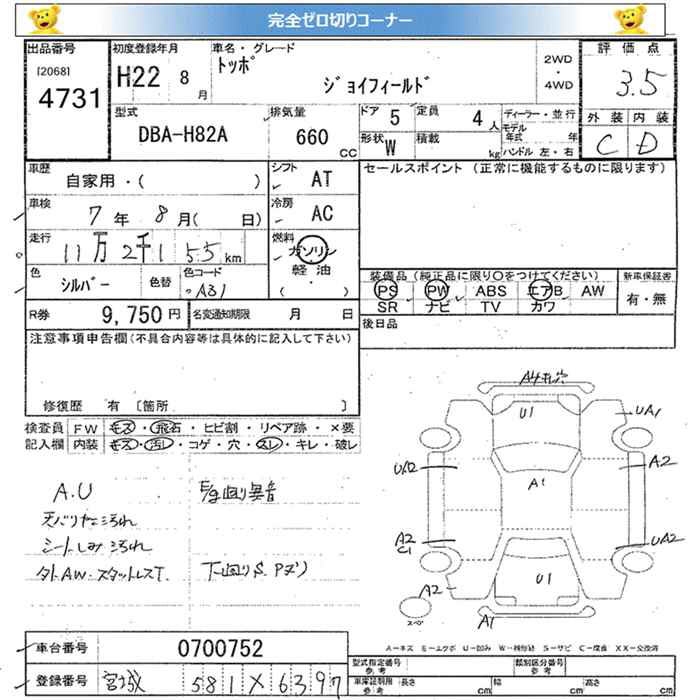 完全ゼロ切りコーナー
出品番号
[2068]
4731
初度登録年月
H22 8月
車名・グレード
トッポ
ジョイフィールド
2WD
・
4WD
評価点
3.5
型式
DBA-H82A
排気量
660 CC
ドア 5
定員 4人
形状 W
積載 kg
ディーラー・並行
モデル年式 年
ハンドル 左・右
外装 内装
C D
車歴
自家用・( )
シフト
AT
セールスポイント (正常に機能するものに限ります)
車検
7年8月( 日)
冷房
AC
走行
11万2千155km
燃料
ガソリン
・
軽油
( )
色
シルバー
色替
色コード
A31
装備品(純正品に限り○をつけてください)
新車保証書
PS PW ABS エアB AW
SR ナビ TV カワ
有・無
R券 9,750円
名変通知期限 月 日
後日品
注意事項申告欄(不具合内容等は具体的に記入して下さい)
修復歴 有 〔箇所 〕
検査員 FW キズ・飛石・ヒビ割・リペア跡・×要
記入欄 内装 キズ・汚レ・コゲ・穴・スレ・キレ・破レ
A.U
E/g廻り異音
天バリたこ汚れ
シートしみ汚れ
タトAW・スタットレスT.
下廻りS. Pズリ
A4キレ穴
U1
UA1
UA2
A2
A1
A2
C1
UA2
U1
A2
スペア
A1
A－キズ E－エクボ U－凹み W－補修跡 S－サビ C－腐食 XX－交換済
車台番号 0700752
登録番号 宮城 581 × 6397
型式指定番号 参考
類別区分番号 参考
車庫証明用 参考
長さ cm 幅 cm 高さ cm